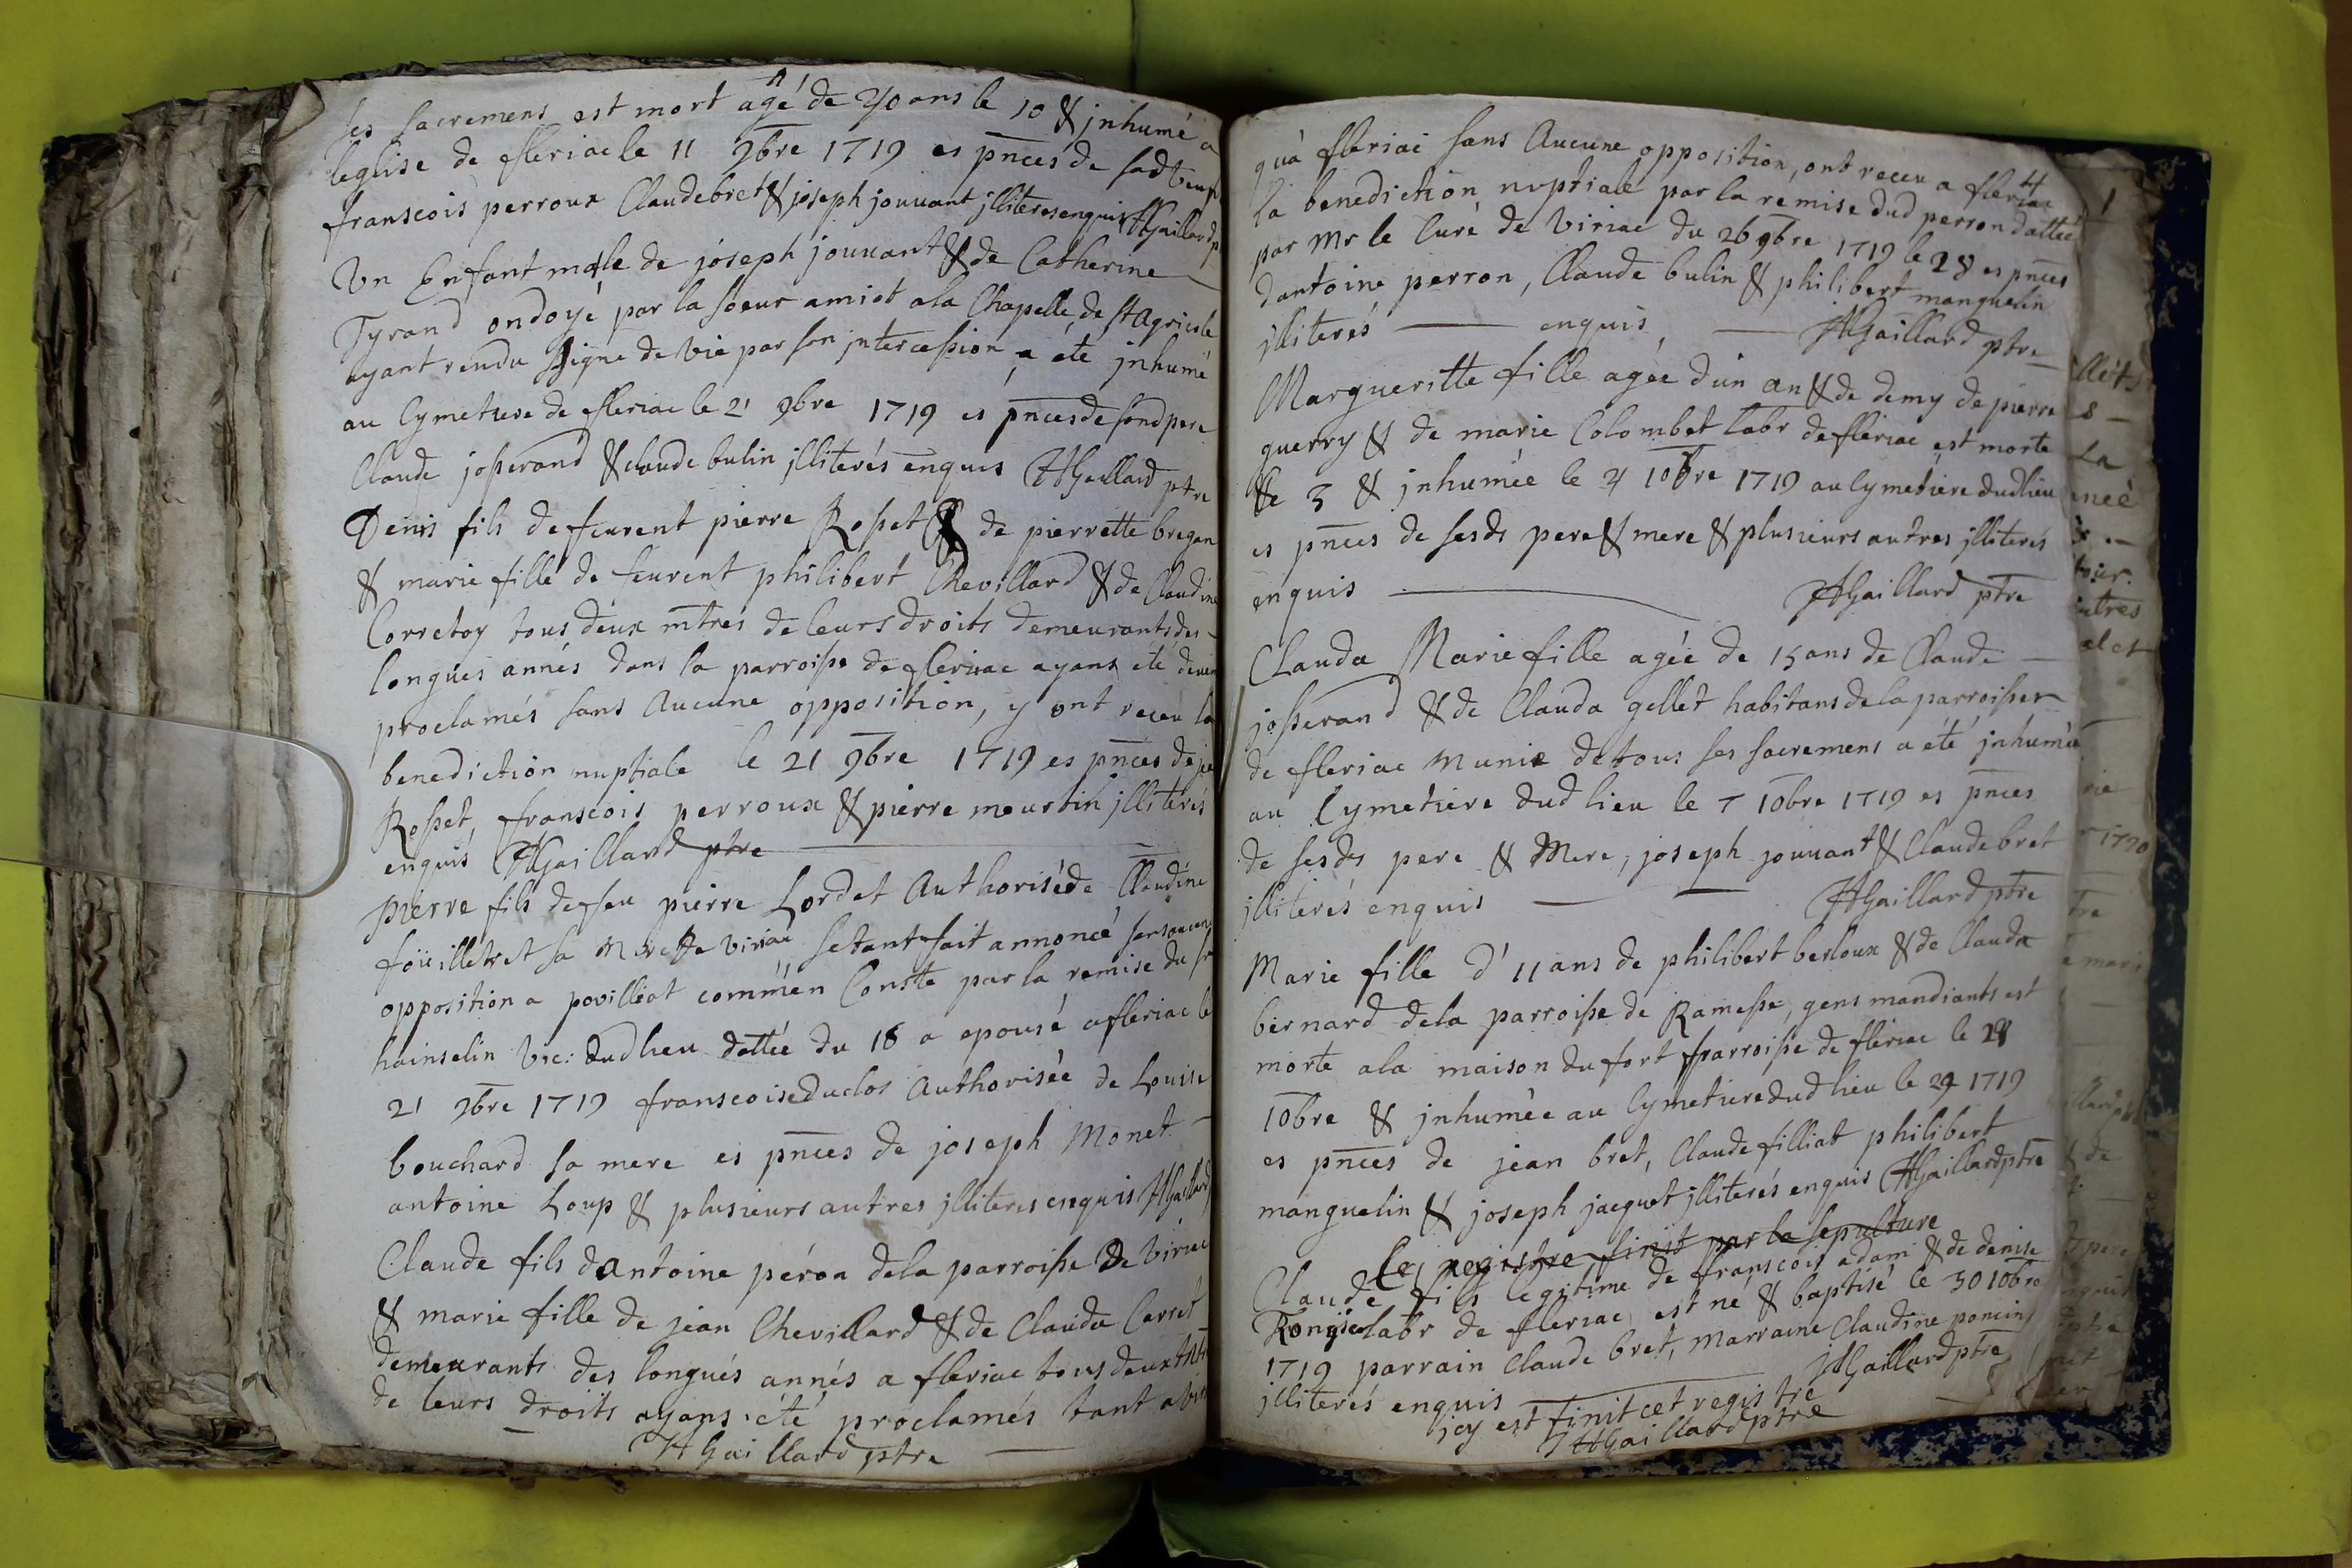 ses sacremens est mort agé de 40 ans le 10 & jnhumé a
leglise de fleriac le 11 9bre 1719 es pnces de sad
franscois perroux Claude bret & joseph jouuant jlliteres enquis HGaillard
Vn Enfant mâle de joseph jouuant & de Catherine
Tyrand ondoyé par la soeur amiot a la Chapelle de St Agricole
ayant rendu signe de vie par son jntercession a eté jnhumé
au Cymetiere de fleriac le 21 9bre 1719 es pnces de sond pere
Claude josserand & claude bulin jlliterés enquis HGaillard ptre
Denis fils de feurent pierre Rosset & de pierrette bregan
& marie fille de feurent philibert Chevillard & de Claudine
Corretoy tous deux mtres de leurs droits demeurants des
longues annés dans la parroisse de fleriac ayans eté
proclamés sans Aucune opposition, y ont receu la
benediction nuptiale le 21 9bre 1719 es pnces de
Rosset, franscois perroux & pierre meurtin jlliterés
enquis HGaillard ptre
pierre fils de feu pierre Lordet Authorisé de Claudine
foüilletret sa Mere de viriac setant fait annoncé sans aucune
opposition a povilliat comm'en Conste par la remise du sr
hainselin vic: dud lieu dattée du 18 a epousé a fleriac le
21 9bre 1719 franscoise Duclos Authorisée de Louise
bouchard sa mere es pnces de joseph Monet
antoine Loup & plusieurs autres jlliteres enquis HGaillard
Claude fils dantoine péron dela parroisse De Viriac
& marie fille de jean Chevillard & de Clauda Carret
demeurants des longués annés a fleriac tous deux
de leurs droits ayans eté proclamés tant a
HGaillard ptre
4
qu'à fleriac sans Aucune opposition, ont receu a fleriac
la benediction nuptiale par la remise dud perron dattée
par Mr le Curé de Viriac du 26 9bre 1719 le 28 es pnces
dantoine perron, Claude bulin & philibert manguelin
jlliterés enquis HGaillard ptre
Margueritte fille agée dun an & de demy de pierre
guerry & de marie Colombet labr de fleriac est morte
le 3 & jnhumée le 4 10bre 1719 au Cymetiere dud lieu
es pnces de sesds pere & mere & plusieurs autres jlliterés
enquis HGaillard ptre
Clauda Marie fille agée de 15 ans de Claude
josserand & de Clauda gellet habitans de la parroisse
de fleriac munie de tous ses sacremens a eté jnhumée
au Cymetiere dud lieu le 7 10bre 1719 es pnces
de sesds pere & Mere, joseph jouuant & Claude bret
jlliterés enquis HGaillard ptre
Marie fille d'11 ans de philibert berloux & de Clauda
bernard dela parroisse de Ramasse, gens mandiants est
morte ala maison du fort parroisse de fleriac le 28
10bre & jnhumée au Cymetiere dud lieu le 29 1719
es pnces de jean bret, Claude filliat philibert
manguelin & joseph jacquet jlliterés enquis HGaillard ptre
Ce registre finit par la sepulture
Claude fils legitime de franscois adam & de denise
Rongier labr de fleriac est né & baptisé le 30 10bre
1719 parrain Claude bret, Marraine Claudine poncin
jlliterés enquis HGaillard ptre
jcy est finit cet registre
HGaillard ptre